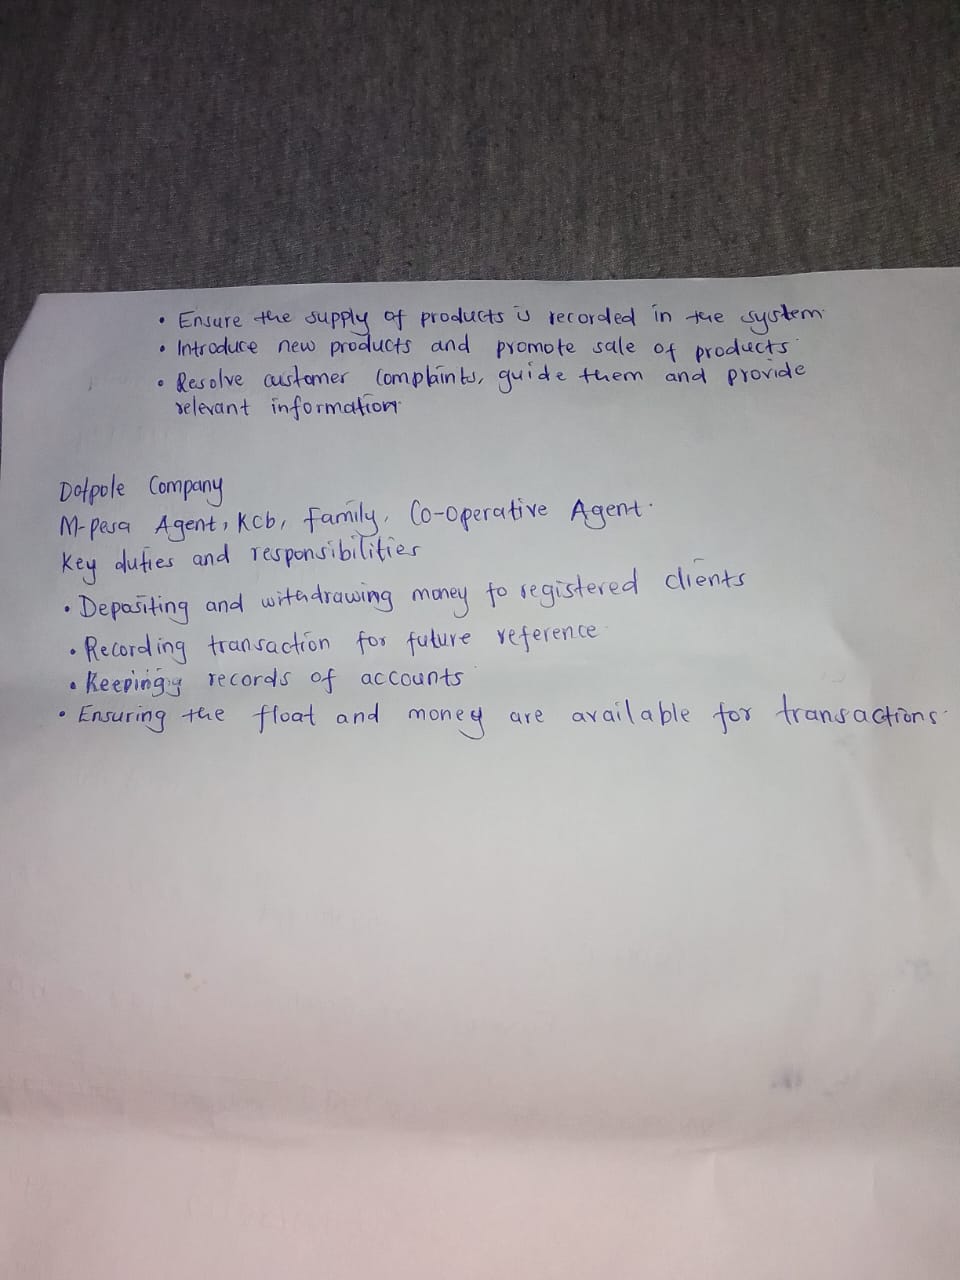 • Ensure the supply of products is recorded in the system.
• Introduce new products and promote sale of products.
• Resolve customer complaints, guide them and provide
relevant information.
Dotpole Company
M-pesa Agent, Kcb, Family, Co-operative Agent.
Key duties and responsibilities
• Depositing and withdrawing money to registered clients
• Recording transaction for future reference.
• Keeping records of accounts
• Ensuring the float and money are available for transactions.